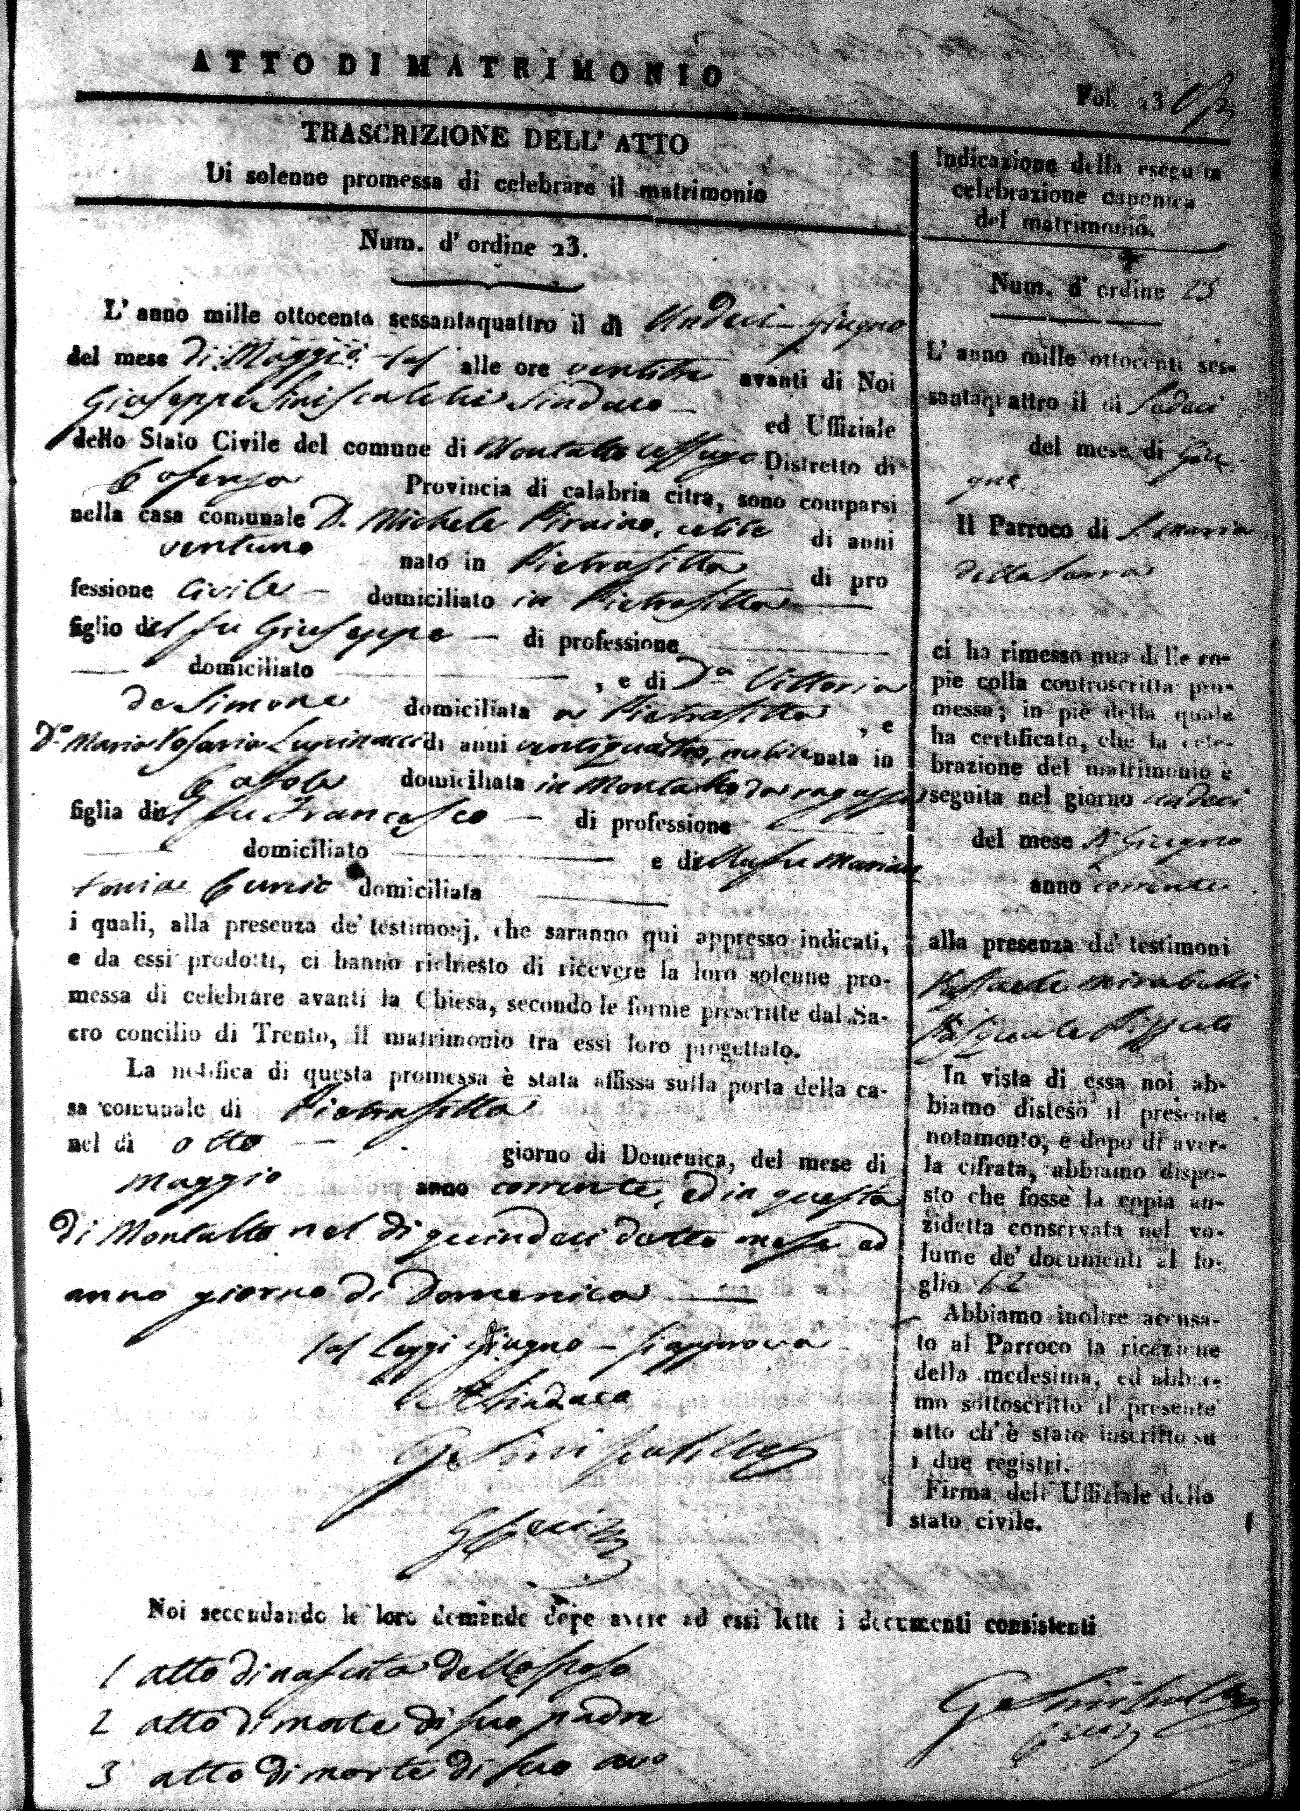 ATTO DI MATRIMONIO
Vol. 23
TRASCRIZIONE DELL' ATTO
Di solenne promessa di celebrare il matrimonio
Num. d' ordine 23.
L' anno mille ottocento sessantaquattro il dì Undeci Giugno
del mese di Maggio alle ore ventitre avanti di Noi
Giuseppe Siniscalchi Sindaco ed Uffiziale
dello Stato Civile del comune di Montalto Uffugo Distretto di
Cosenza Provincia di calabria citra, sono comparsi
nella casa comunale D. Michele Piraino, celibe di anni
ventuno nato in Pietrafitta di pro
fessione Civile domiciliato in Pietrafitta
figlio del fu Giuseppe di professione
domiciliato , e di D.a Vittoria
de Simone domiciliata in Pietrafitta , e
D.a Maria Rosaria Lupinacci di anni ventiquattro, nubile nata in
Casole domiciliata in Montalto da ragazza
figlia del fu Francesco di professione
domiciliato e della fu Marian
tonia Curcio domiciliata
i quali, alla presenza de' testimonj, che saranno qui appresso indicati,
e da essi prodotti, ci hanno richiesto di ricevere la loro solenne pro-
messa di celebrare avanti la Chiesa, secondo le forme prescritte dal Sa-
cro concilio di Trento, il matrimonio tra essi loro progettato.
La notifica di questa promessa è stata affissa sulla porta della ca-
sa comunale di Pietrafitta
nel dì otto giorno di Domenica, del mese di
Maggio anno corrente, ed in questa
di Montalto nel dì quindeci detto mese ed
anno giorno di Domenica
Leggi Giugno - si approva
Il Sindaco
Ge Siniscalchi
Noi secondando le loro demande dopo avere ad essi lette i documenti consistenti
1 atto di nascita dello sposo
2 atto di morte di suo padre
3 atto di morte di suo avo
Indicazione della esegu ta
celebrazione canonica
del matrimonio.
Num. d' ordine 23
L' anno mille ottocenti ses-
santaquattro il dì Sedeci
del mese di Giu
gno
Il Parroco di S. Maria
della Serra
ci ha rimesso una delle co-
pie colla controscritta pro-
messa; in piè della quale
ha certificato, che la cele-
brazione del matrimonio è
seguita nel giorno undeci
del mese di Giugno
anno corrente
alla presenza de' testimoni
Raffaele Mirabelli
Pasquale Pizzuti
In vista di essa noi ab-
biamo disteso il presente
notamento, e dopo di aver-
la cifrata, abbiamo dispo-
sto che fosse la copia an-
zidetta conservata nel vo-
lume de' documenti al fo-
glio 62
Abbiamo inoltre accusa-
to al Parroco la ricezione
della medesima, ed abbia-
mo sottoscritto il presente
atto ch' è stato inscritto su
i due registri.
Firma dell' Uffiziale dello
stato civile.
Ge Siniscalchi